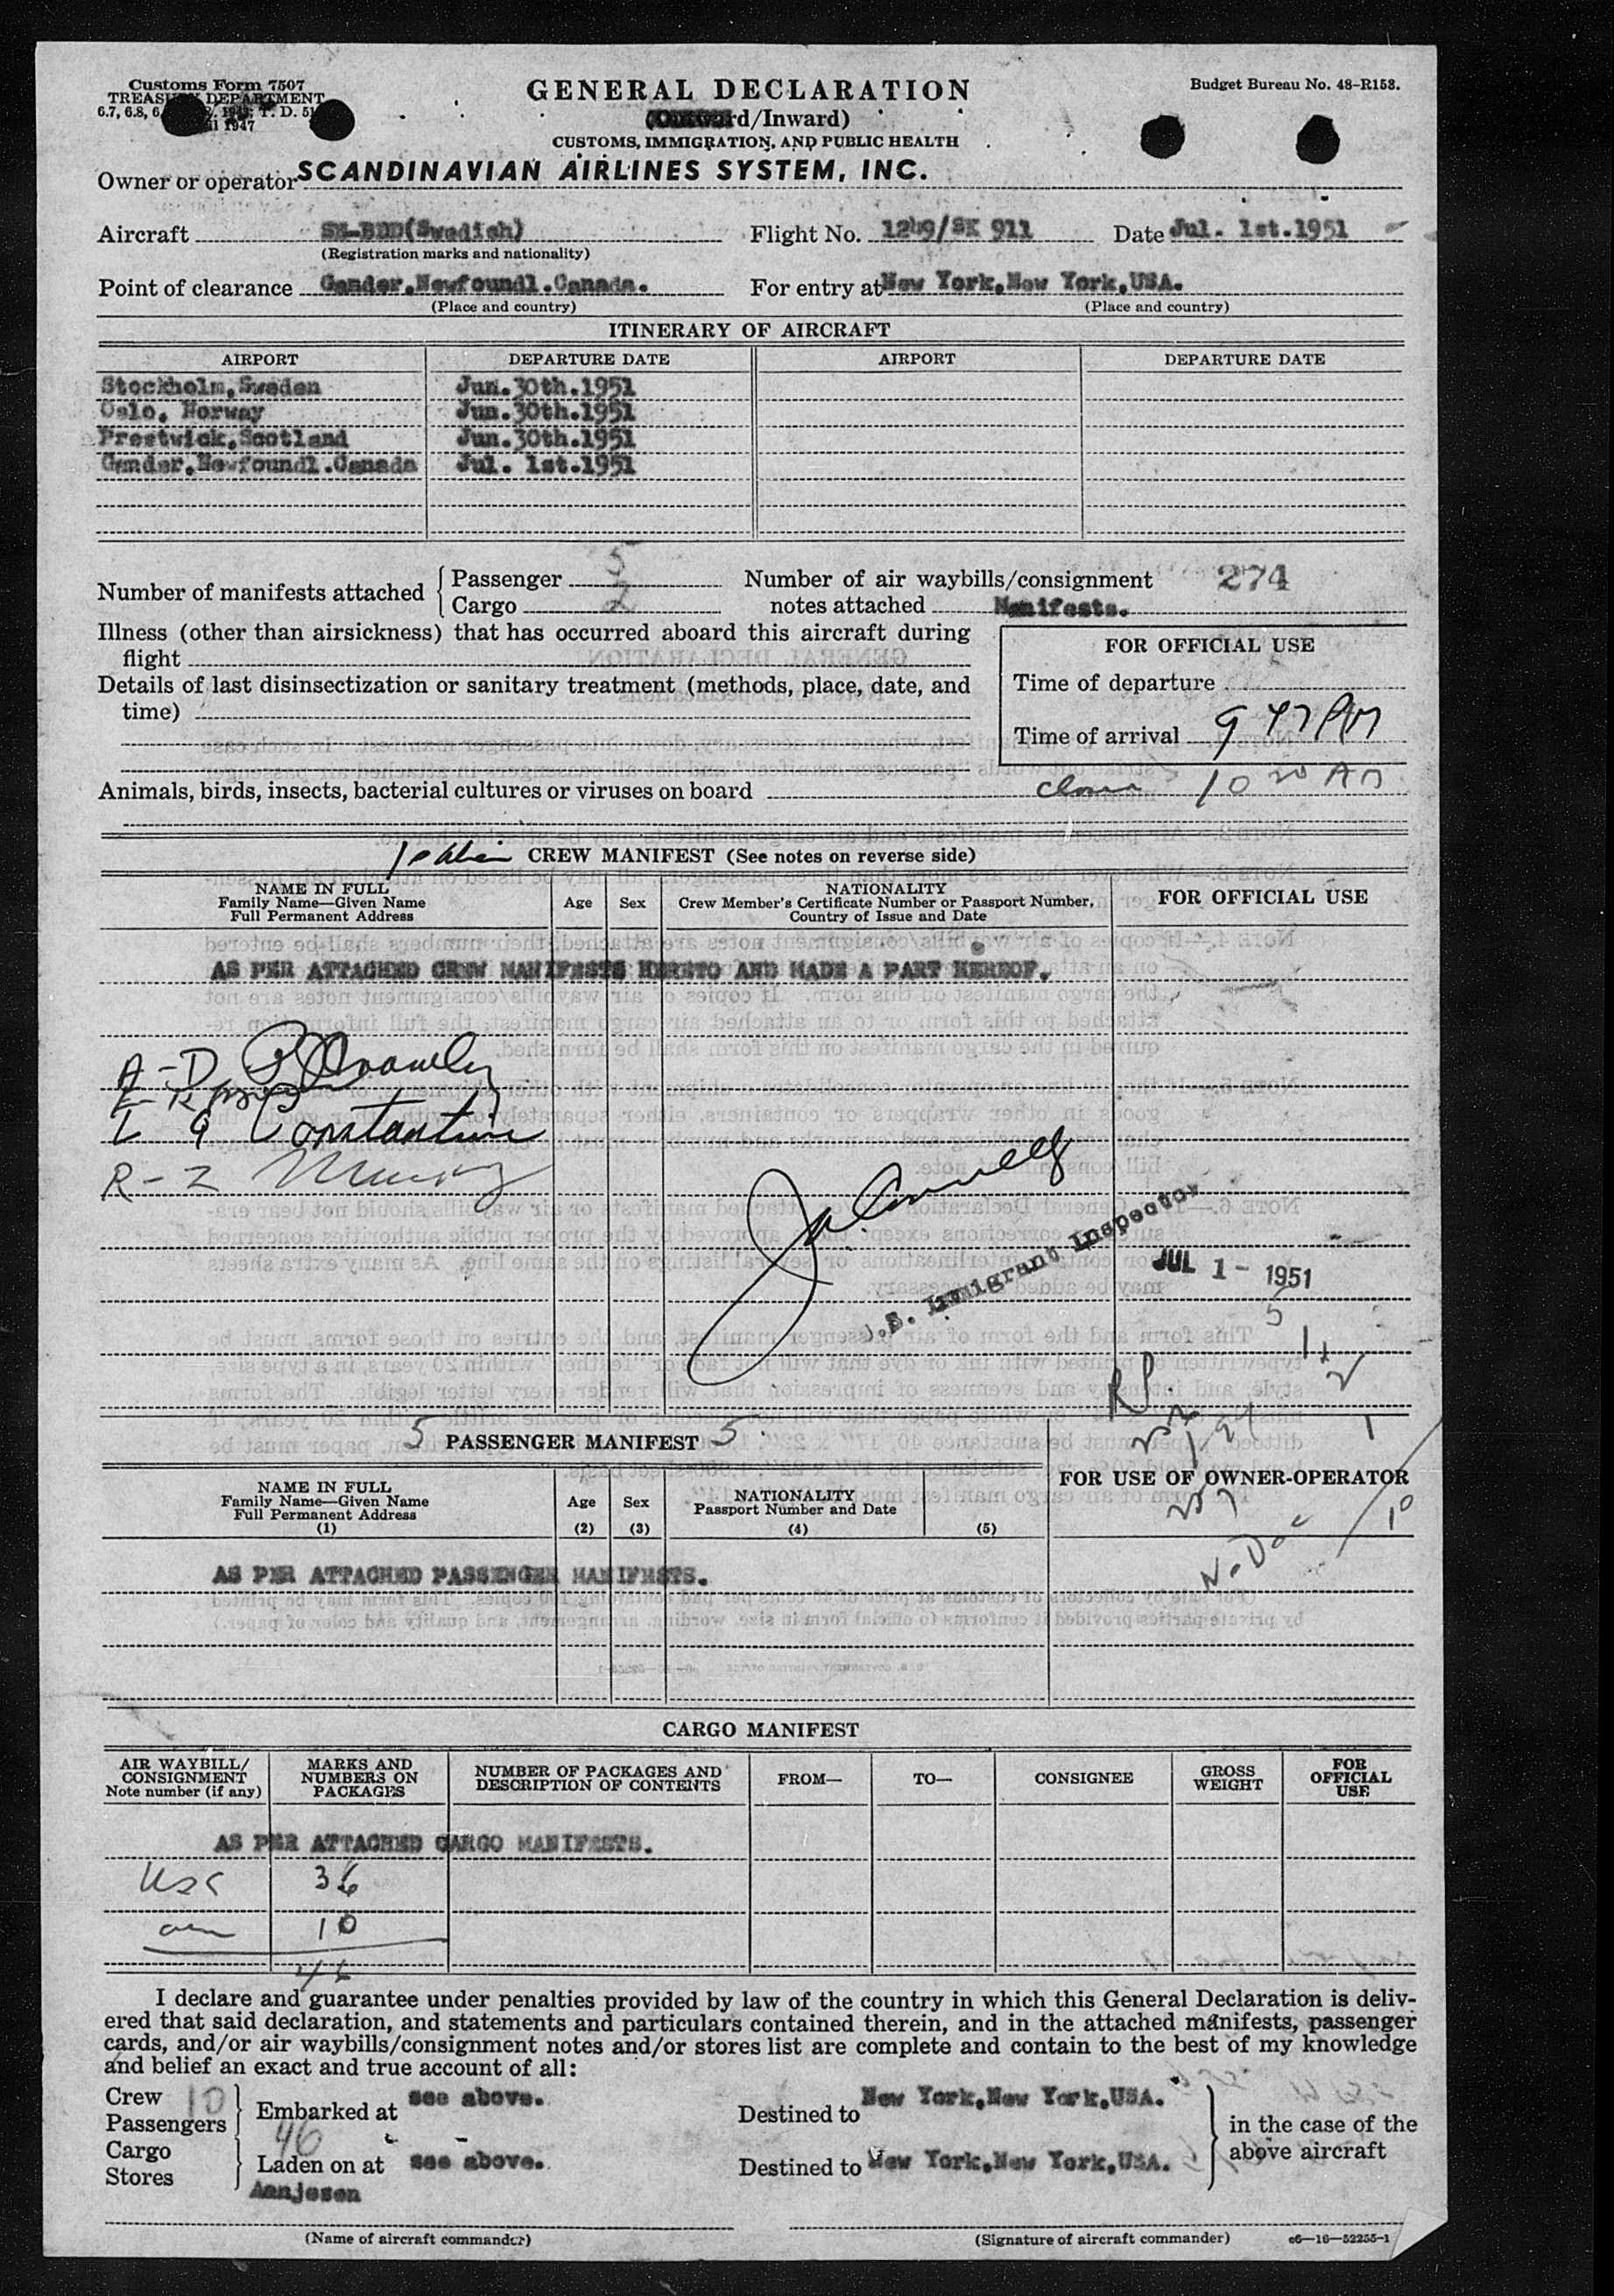 Customs Form 7507
TREASURY DEPARTMENT
1947
GENERAL DECLARATION
(Outward/Inward)
CUSTOMS, IMMIGRATION, AND PUBLIC HEALTH
Budget Bureau No. 48-R153.
Owner or operator SCANDINAVIAN AIRLINES SYSTEM, INC.
Aircraft SE-BDD(Swedish) Flight No. 1249/SK 911 Date Jul. 1st.1951
(Registration marks and nationality)
Point of clearance Gander,Newfoundl.Canada. For entry at New York,New York,USA.
(Place and country) (Place and country)
ITINERARY OF AIRCRAFT
AIRPORT DEPARTURE DATE AIRPORT DEPARTURE DATE
Stockholm,Sweden Jun.30th.1951
Oslo, Norway Jun.30th.1951
Prestwick,Scotland Jun.30th.1951
Gander,Newfoundl.Canada Jul. 1st.1951
Number of manifests attached
Passenger 5
Cargo 2
Number of air waybills/consignment 274
notes attached Manifests.
Illness (other than airsickness) that has occurred aboard this aircraft during
flight
Details of last disinsectization or sanitary treatment (methods, place, date, and
time)
FOR OFFICIAL USE
Time of departure
Time of arrival 9 47 AM
Animals, birds, insects, bacterial cultures or viruses on board
10 20 AM
CREW MANIFEST (See notes on reverse side)
NAME IN FULL
Family Name—Given Name
Full Permanent Address
Age Sex
NATIONALITY
Crew Member's Certificate Number or Passport Number,
Country of Issue and Date
FOR OFFICIAL USE
AS PER ATTACHED CREW MANIFESTS HERETO AND MADE A PART HEREOF.
A-D
Constantine
R-Z
U.S. Immigrant Inspector
JUL 1- 1951
5 PASSENGER MANIFEST 5
NAME IN FULL
Family Name—Given Name
Full Permanent Address
(1)
Age
(2)
Sex
(3)
NATIONALITY
Passport Number and Date
(4) (5)
FOR USE OF OWNER-OPERATOR
AS PER ATTACHED PASSENGER MANIFESTS.
CARGO MANIFEST
AIR WAYBILL/
CONSIGNMENT
Note number (if any)
MARKS AND
NUMBERS ON
PACKAGES
NUMBER OF PACKAGES AND
DESCRIPTION OF CONTENTS
FROM— TO— CONSIGNEE
GROSS
WEIGHT
FOR
OFFICIAL
USE
AS PER ATTACHED CARGO MANIFESTS.
USC 36
10
46
I declare and guarantee under penalties provided by law of the country in which this General Declaration is deliv-
ered that said declaration, and statements and particulars contained therein, and in the attached manifests, passenger
cards, and/or air waybills/consignment notes and/or stores list are complete and contain to the best of my knowledge
and belief an exact and true account of all:
Crew 10
Passengers 46
Embarked at see above. Destined to New York,New York,USA.
Cargo
Stores
Laden on at see above. Destined to New York,New York,USA.
in the case of the
above aircraft
Aanjesen
(Name of aircraft commander) (Signature of aircraft commander) c6—16—52255-1